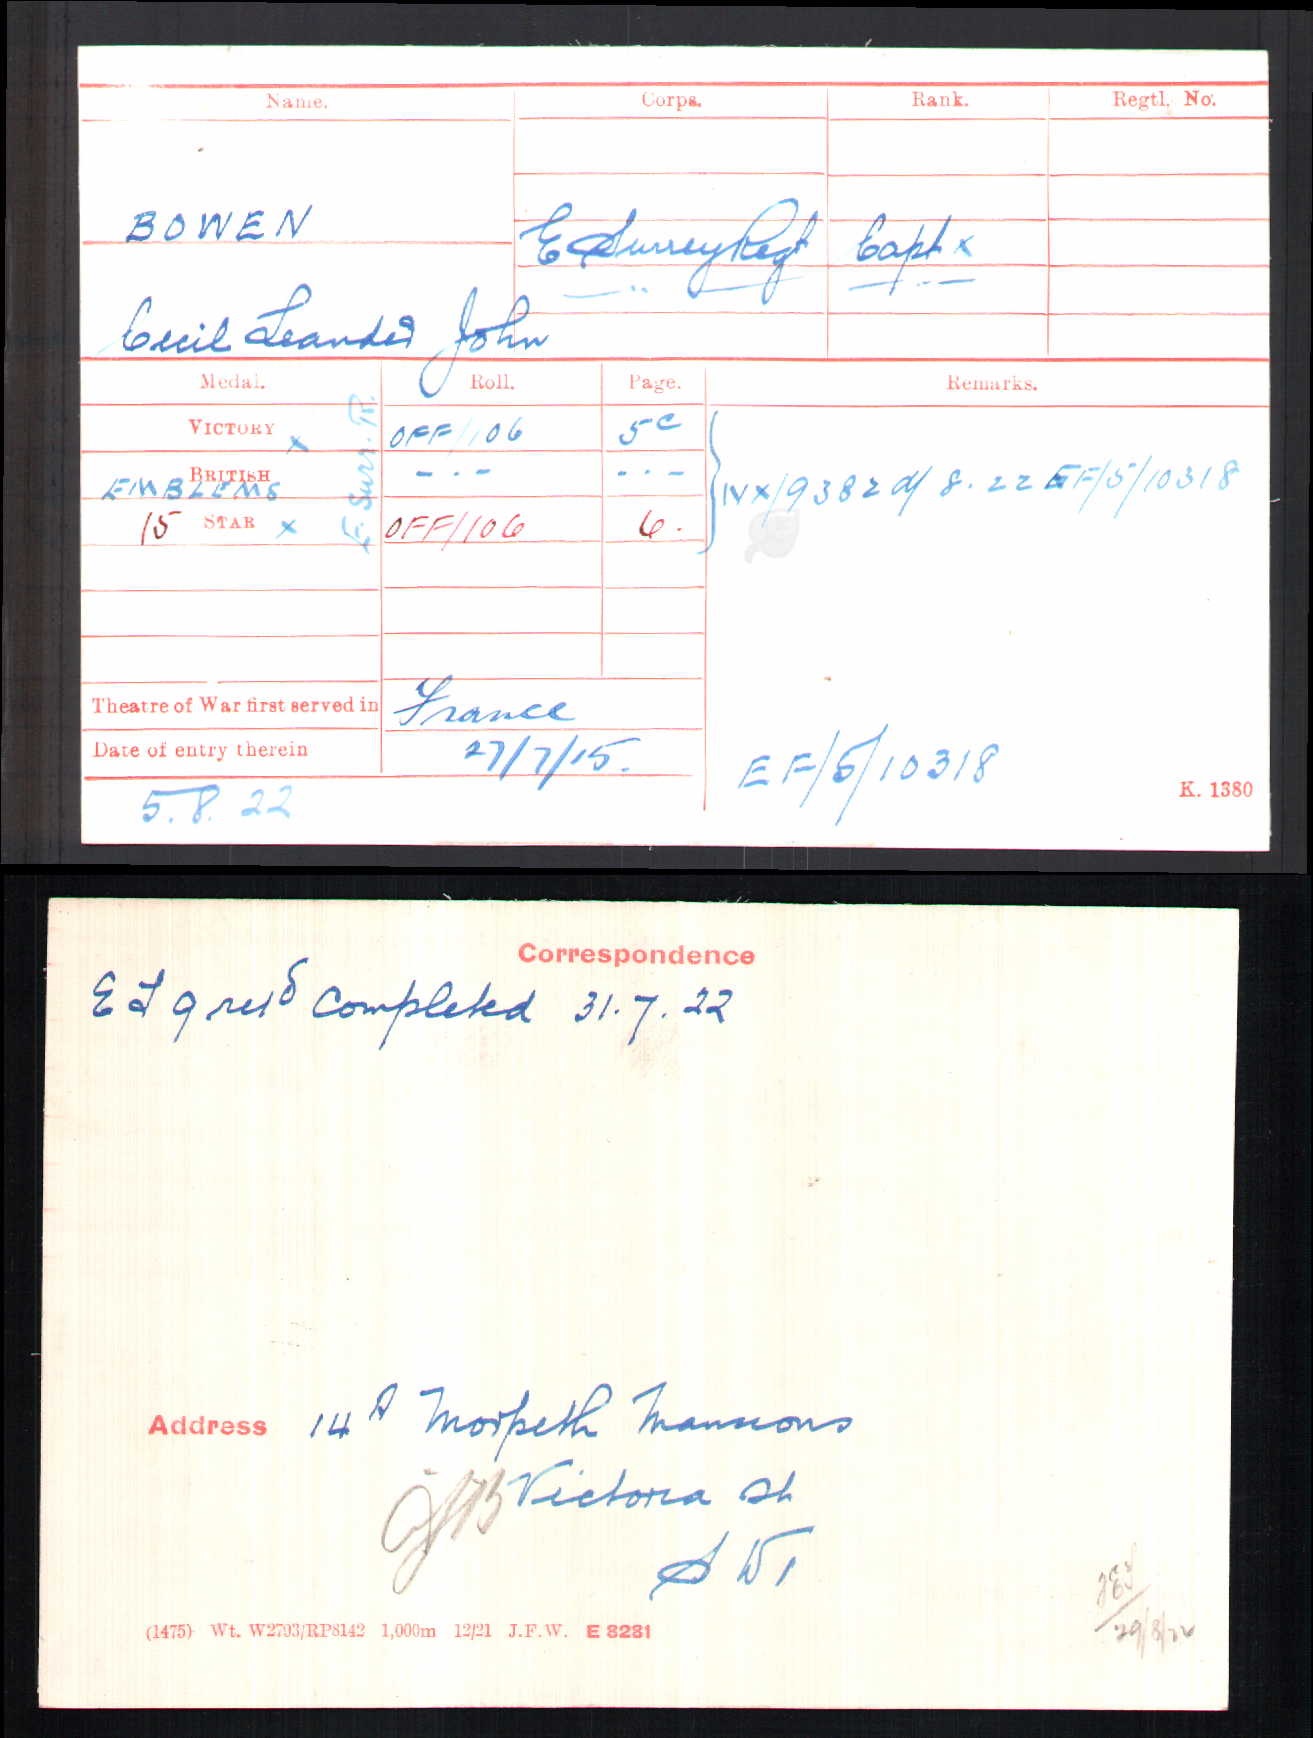 Name. Corps. Rank. Regtl. No.
BOWEN E Surrey Regt Capt x
Cecil Leander John
Medal. Roll. Page. Remarks.
VICTORY x OFF/106 5C
BRITISH - . - - . -
EMBLEMS
E. Surr. R.
15 STAR x OFF/106 6.
IVX/9382 d/ 8.22 EF/5/10318
Theatre of War first served in France
Date of entry therein 27/7/15.
5.8.22
EF/5/10318
K. 1380
Correspondence
completed 31.7.22
Address 14A Morpeth Mansions
Victoria St
S W1
29/8/22
(1475) Wt. W2793/RP8142 1,000m 12/21 J.F.W. E 8281